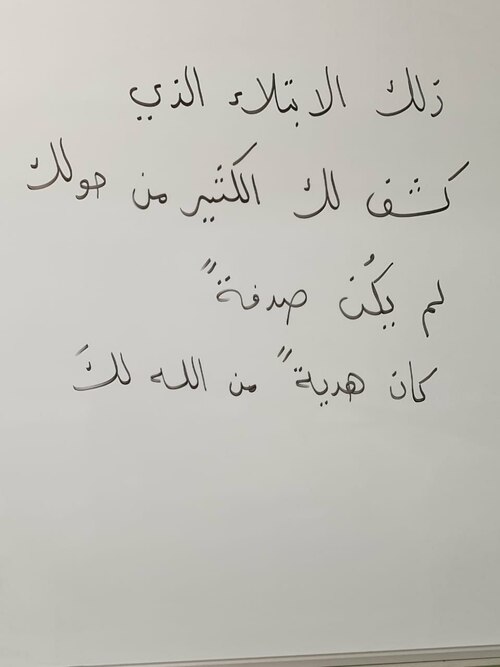 ذلك الابتلاء الذي
كشف لك الكثير من حولك
لم يكُن صدفةً
كان هديةً من الله لكَ